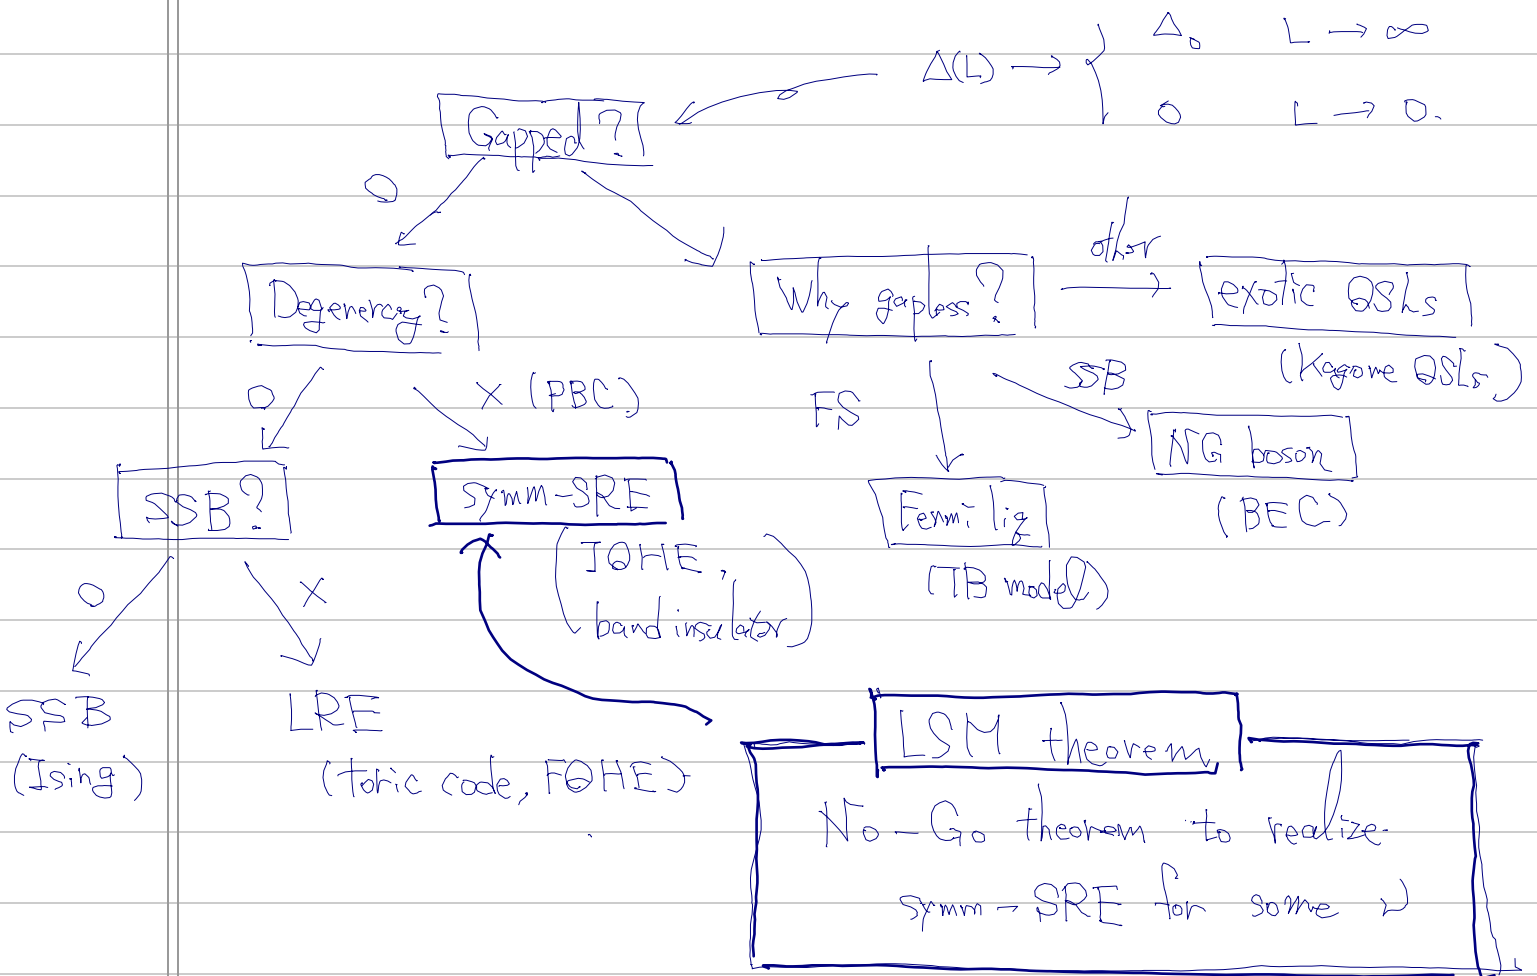 Δ(L) → { Δ₀ L → ∞
0 L → 0.
Gapped?
O
Degeneracy?
Why gapless?
other
exotic QSLs
(Kagome QSLs)
O
X (PBC)
FS
SSB
NG boson
(BEC)
SSB?
symm-SRE
Fermi liq
(TB model)
(IQHE,
band insulator)
O
X
SSB
LRE
(Ising)
(toric code, FQHE)
LSM theorem
No-Go theorem to realize
symm-SRE for some ν